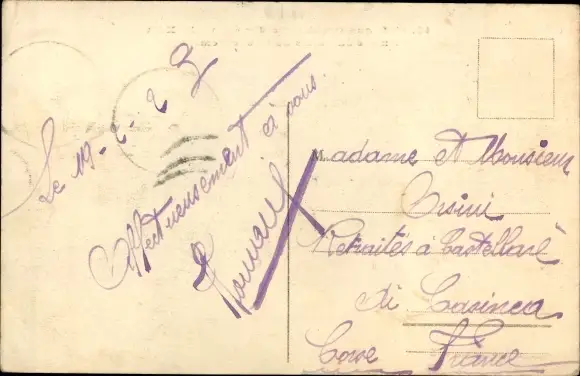 Le 19-2-23
Affectueusement à vous.
Madame et Monsieur
Orsini
Retraités à Castellare
di Casinca
Corse France